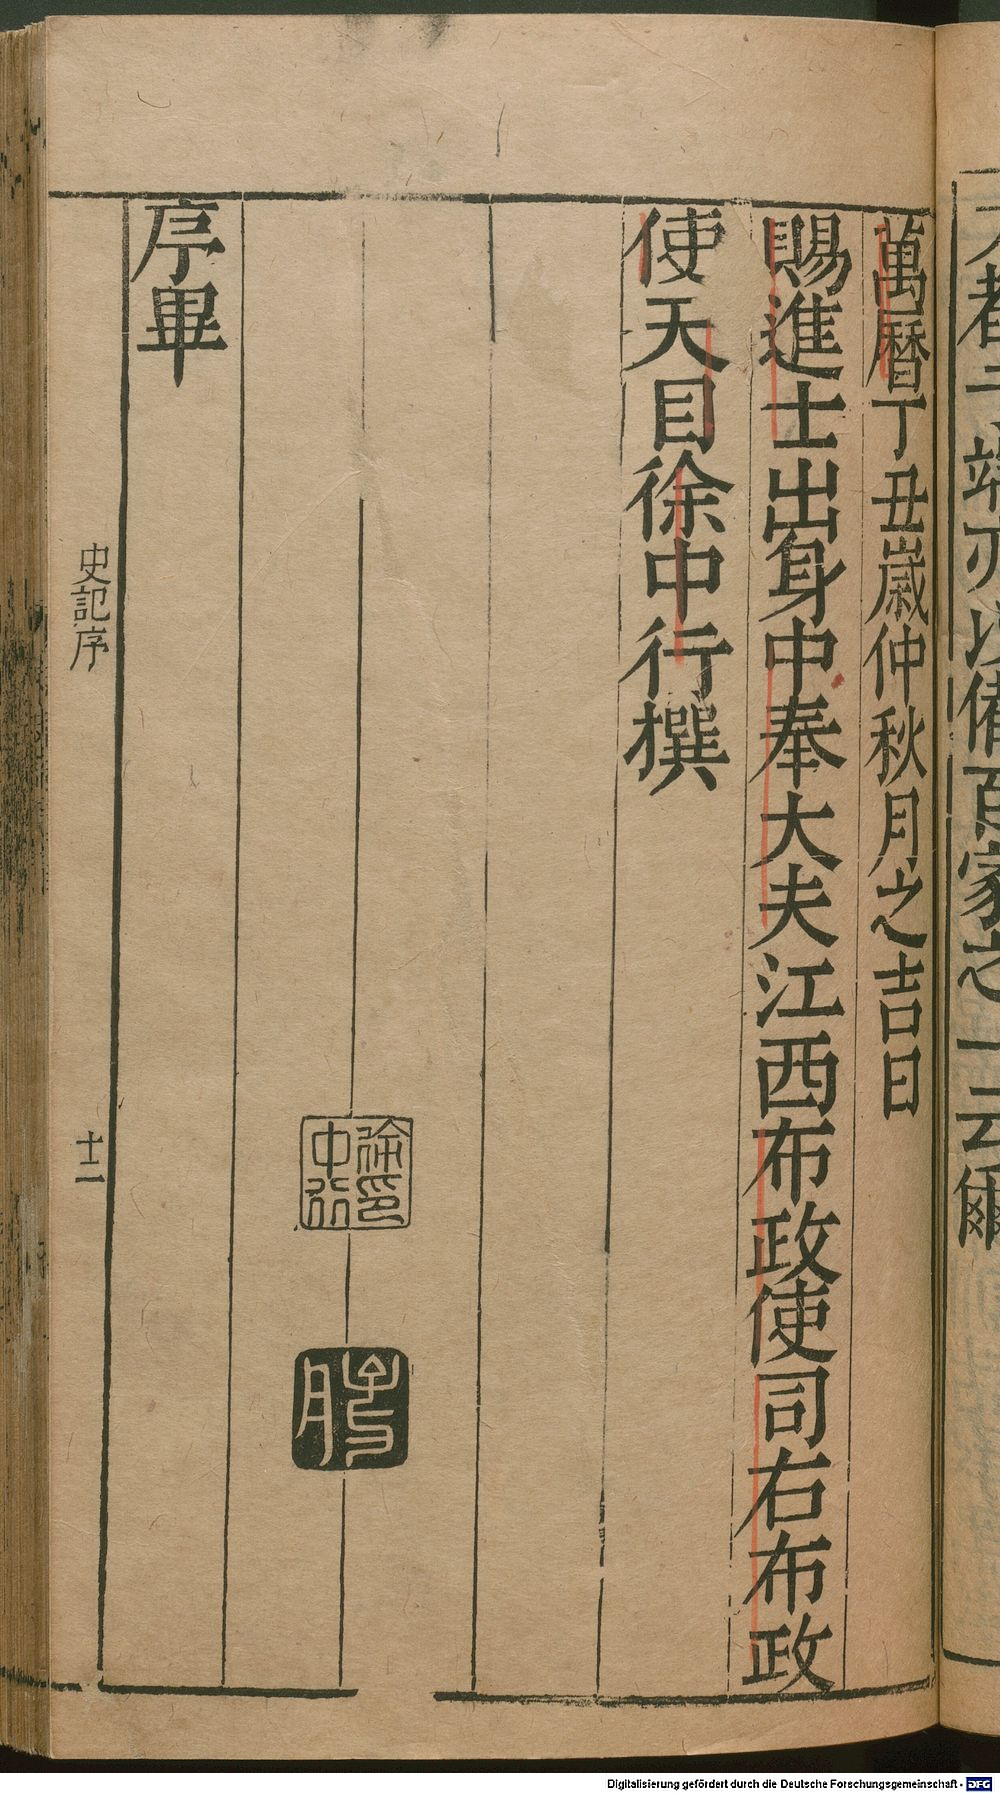 大都之端亦以備百家之一云爾
萬曆丁丑歲仲秋月之吉日
賜進士出身中奉大夫江西布政使司右布政
使天目徐中行撰
徐中行印
序畢
史記序
十二
Digitalisierung gefördert durch die Deutsche Forschungsgemeinschaft - DFG